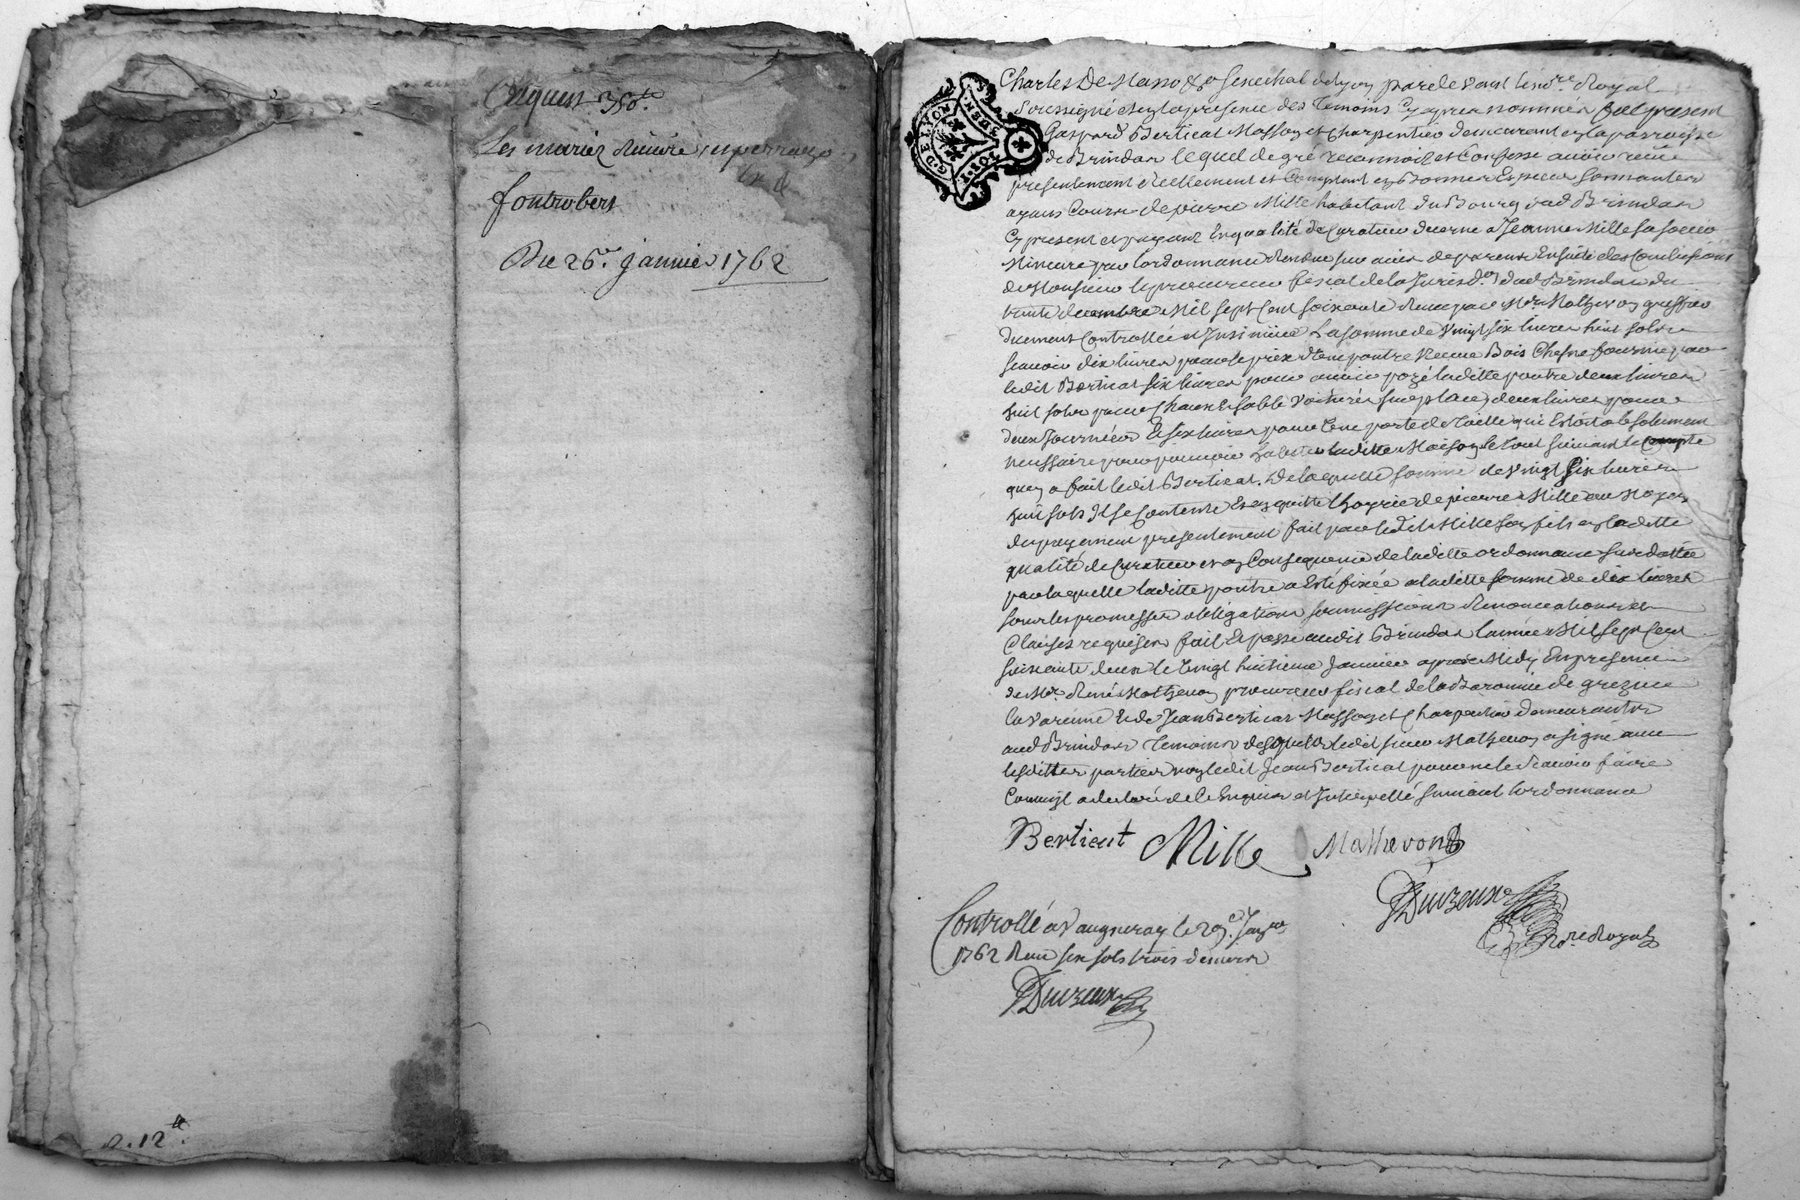 Les mariez Riviere
fontrobert
Du 26e. janvier 1762
R. 12
G. DE LYON
Charles De Masso &c Senechal de Lyon par devant le no.re Royal
soussigné et en la presence des temoins cy apres nommés fut present
Gaspard Berticat Masson et Charpentier demeurant en la parroisse
de Brindas lequel de gré reconnoit et Confesse avoir reçu
presentement reellement et Comptant en Bonnes Especes sonnantes
ayans Cours de pierre Mille habitant du Bourg dud Brindas
Cy present et payant En qualité de Curateur decerné a Jeanne Mille sa soeur
Mineure par lordonnance Rendue sur avis de parens Ensuite des Conclusions
de Monsieur le procureur fiscal de la Jurisd.on dud Brindas du
trente decembre Mil sept Cent soixante par Me Mathevon greffier
duement Controllée et Insinüée La somme de Vingt six livres huit sols
scavoir dix livres pour le prix d'une poutre Bois Chesne fournie par
ledit Berticat six livres pour avoir pozé laditte poutre deux livres
huit sols pour Chaux et sable sur place, deux livres pour
deux Journées Et six livres pour une porte de taille qui Estoit absolument
necessaire pour laditte Maison le tout suivant le Compte
quen a fait ledit Berticat. De laquelle somme de Vingt Six livres
huit sols Il se Contente Et en quitte lhoyrie de pierre Mille au Moyen
du payement presentement fait par ledit Mille son fils en laditte
qualité de Curateur et en Consequence de laditte ordonnance susdattée
par laquelle laditte poutre a Esté fixée a laditte somme de dix livres
sous les promesses obligations soumissions Renonciations et
Clauses requises fait Et passé audit Brindas lannée Mil sept Cent
soixante deux le Vingt huitieme Janvier apres Midy En presence
de Me René Mathevon procureur fiscal de la Baronnie de grezieu
la Varenne Et de Jean Berticat Masson et Charpentier demeurants
aud Brindas temoins desquels ledit sieur Mathevon a signé avec
lesdittes parties non ledit Jean Berticat pour ne le scavoir faire
Comme il a declaré de ce Enquis et Interpellé suivant lordonnance
Berticat Mille Mathevon
Duvzeux
no.re Royal
Controllé a Vaugneray le 29e. Janv.er
1762 Reçu six sols trois deniers
Duvzeux